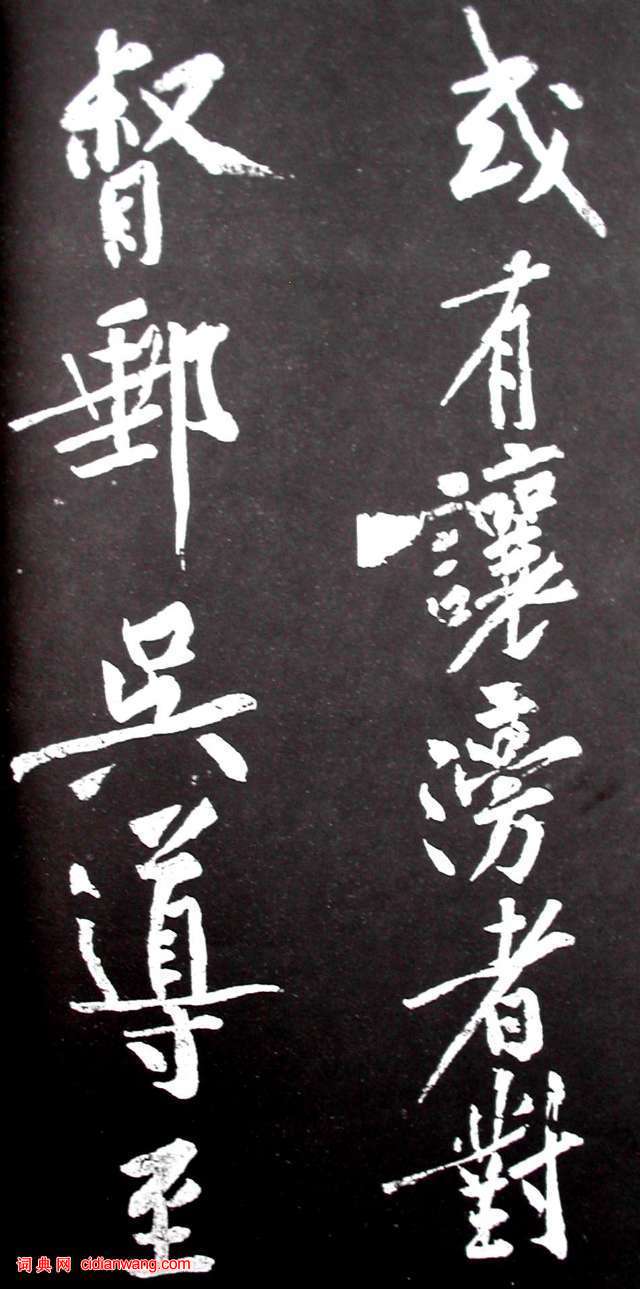 或有讓滂者對
督郵吳導至
词典网 cidianwang.com